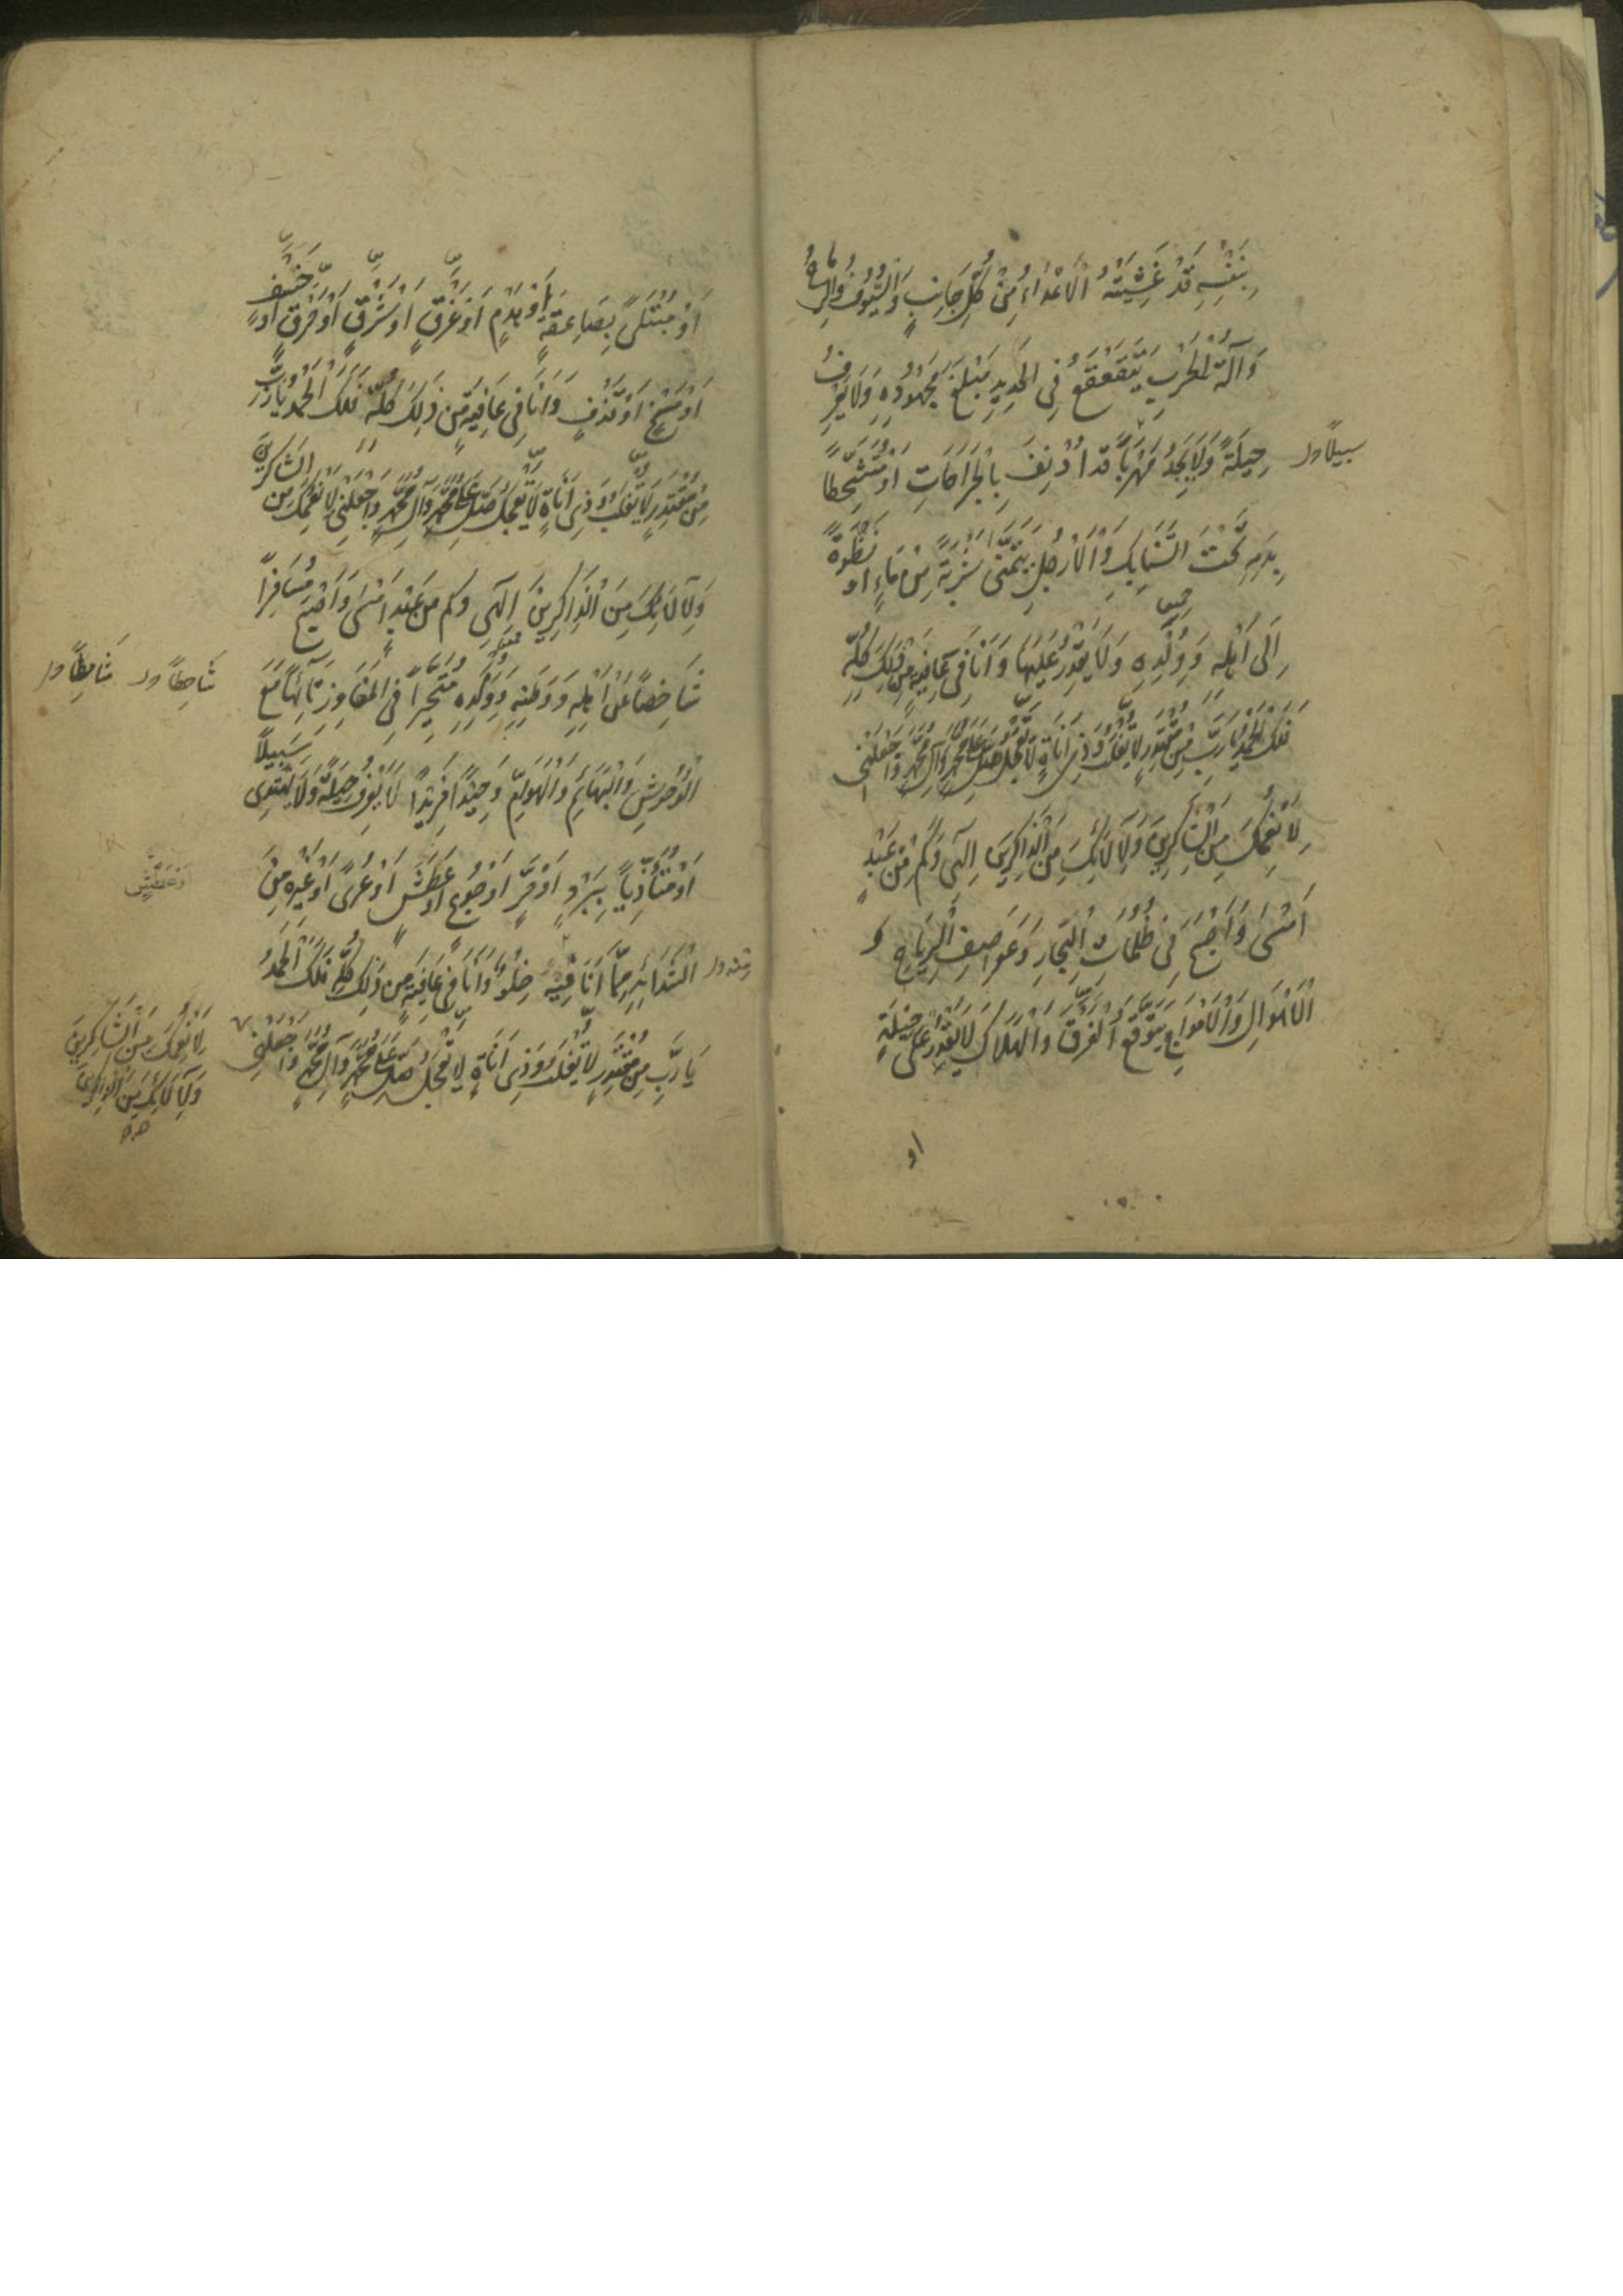 بِنَفْسِهِ قَدْ غَشِيَتْهُ الْاَعْدَاءُ مِنْ كُلِّ جَانِبٍ وَالسُّيُوفُ وَالرِّمَاحُ
وَآلَةُ الْحَرْبِ يَتَقَعْقَعُ فِى الْحَدِيدِ مَبْلَغَ مَجْهُودِهِ وَلَا يَعْرِفُ
حِيلَةً وَلَا يَجِدُ مَهْرَبًا قَدْ اُدْنِفَ بِالْجَرَاحَاتِ اَوْ مُتَشَحِّطًا
سبيلًا ول
بِدَمِهِ تَحْتَ السَّنَابِكِ وَالْاَرْجُلِ يَتَمَنَّى شَرْبَةً مِنْ مَاءٍ او نَظْرَةً
اِلَى اَهْلِهِ وَ وُلْدِهِ وَلَا يَقْدِرُ عَلَيْهَا وَاَنَا فِى عَافِيَةٍ مِنْ ذٰلِكَ كُلِّهِ
فَلَكَ الْحَمْدُ يَا رَبِّ مِنْ مُقْتَدِرٍ لَا يُغْلَبُ وَذِى اَنَاةٍ لَا تَعْجَلُ صَلِّ عَلٰى مُحَمَّدٍ وَآلِ مُحَمَّدٍ وَاجْعَلْنِى
لِاَنْعُمِكَ مِنَ الشَّاكِرِينَ وَلِآلَائِكَ مِنَ الذَّاكِرِينَ اِلٰهِى وَكَمْ مِنْ عَبْدٍ
اَمْسٰى وَاَصْبَحَ فِى ظُلُمَاتِ الْبِحَارِ وَعَوَاصِفِ الرِّيَاحِ وَ
الْاَهْوَالِ وَالْاَمْوَاجِ يَتَوَقَّعُ الْغَرَقَ وَالْهَلَاكَ لَا يَقْدِرُ عَلٰى حِيلَةٍ
او
اَوْ مُبْتَلًى بِصَاعِقَةٍ اَوْ هَدْمٍ اَوْ غَرَقٍ اَوْ شَرَقٍ اَوْ حَرَقٍ اَوْ خَسْفٍ
اَوْ مَسْخٍ اَوْ قَذْفٍ وَاَنَا فِى عَافِيَةٍ مِنْ ذٰلِكَ كُلِّهِ فَلَكَ الْحَمْدُ يَا رَبِّ
مِنْ مُقْتَدِرٍ لَا يُغْلَبُ وَذِى اَنَاةٍ لَا تَعْجَلُ صَلِّ عَلٰى مُحَمَّدٍ وَآلِ مُحَمَّدٍ وَاجْعَلْنِى لِاَنْعُمِكَ مِنَ الشَّاكِرِينَ
وَلِآلَائِكَ مِنَ الذَّاكِرِينَ اِلٰهِى وكم من عَبْدٍ اَمْسٰى وَاَصْبَحَ مُسَافِرًا
شَاخِصًا عَنْ اَهْلِهِ وَوَطَنِهِ وَوُلْدِهِ مُتَحَيِّرًا فِى الْمَفَاوِزِ تَائِهًا مَعَ
شَاحِطًا ول شَامِطًا ول
الْوُحُوشِ وَالْبَهَائِمِ وَالْهَوَامِّ وَحِيدًا فَرِيدًا لَا يَعْرِفُ حِيلَةً وَلَا يَهْتَدِى سَبِيلًا
اَوْ مُتَاَذِّيًا بِبَرْدٍ اَوْ حَرٍّ اَوْ جُوعٍ اَوْ عَطَشٍ اَوْ عُرْىٍ اَوْ غَيْرِهِ مِنَ
الشَّدَائِدِ مِمَّا اَنَا فِيهِ خِلْوٌ وَاَنَا فِى عَافِيَةٍ مِنْ ذٰلِكَ كُلِّهِ فَلَكَ الْحَمْدُ
منه ول
يَا رَبِّ مِنْ مُقْتَدِرٍ لَا يُغْلَبُ وَذِى اَنَاةٍ لَا تَعْجَلُ صَلِّ عَلٰى مُحَمَّدٍ وَآلِ مُحَمَّدٍ وَاجْعَلْنِى
لِاَنْعُمِكَ مِنَ الشَّاكِرِينَ
وَلِآلَائِكَ مِنَ الذَّاكِرِينَ